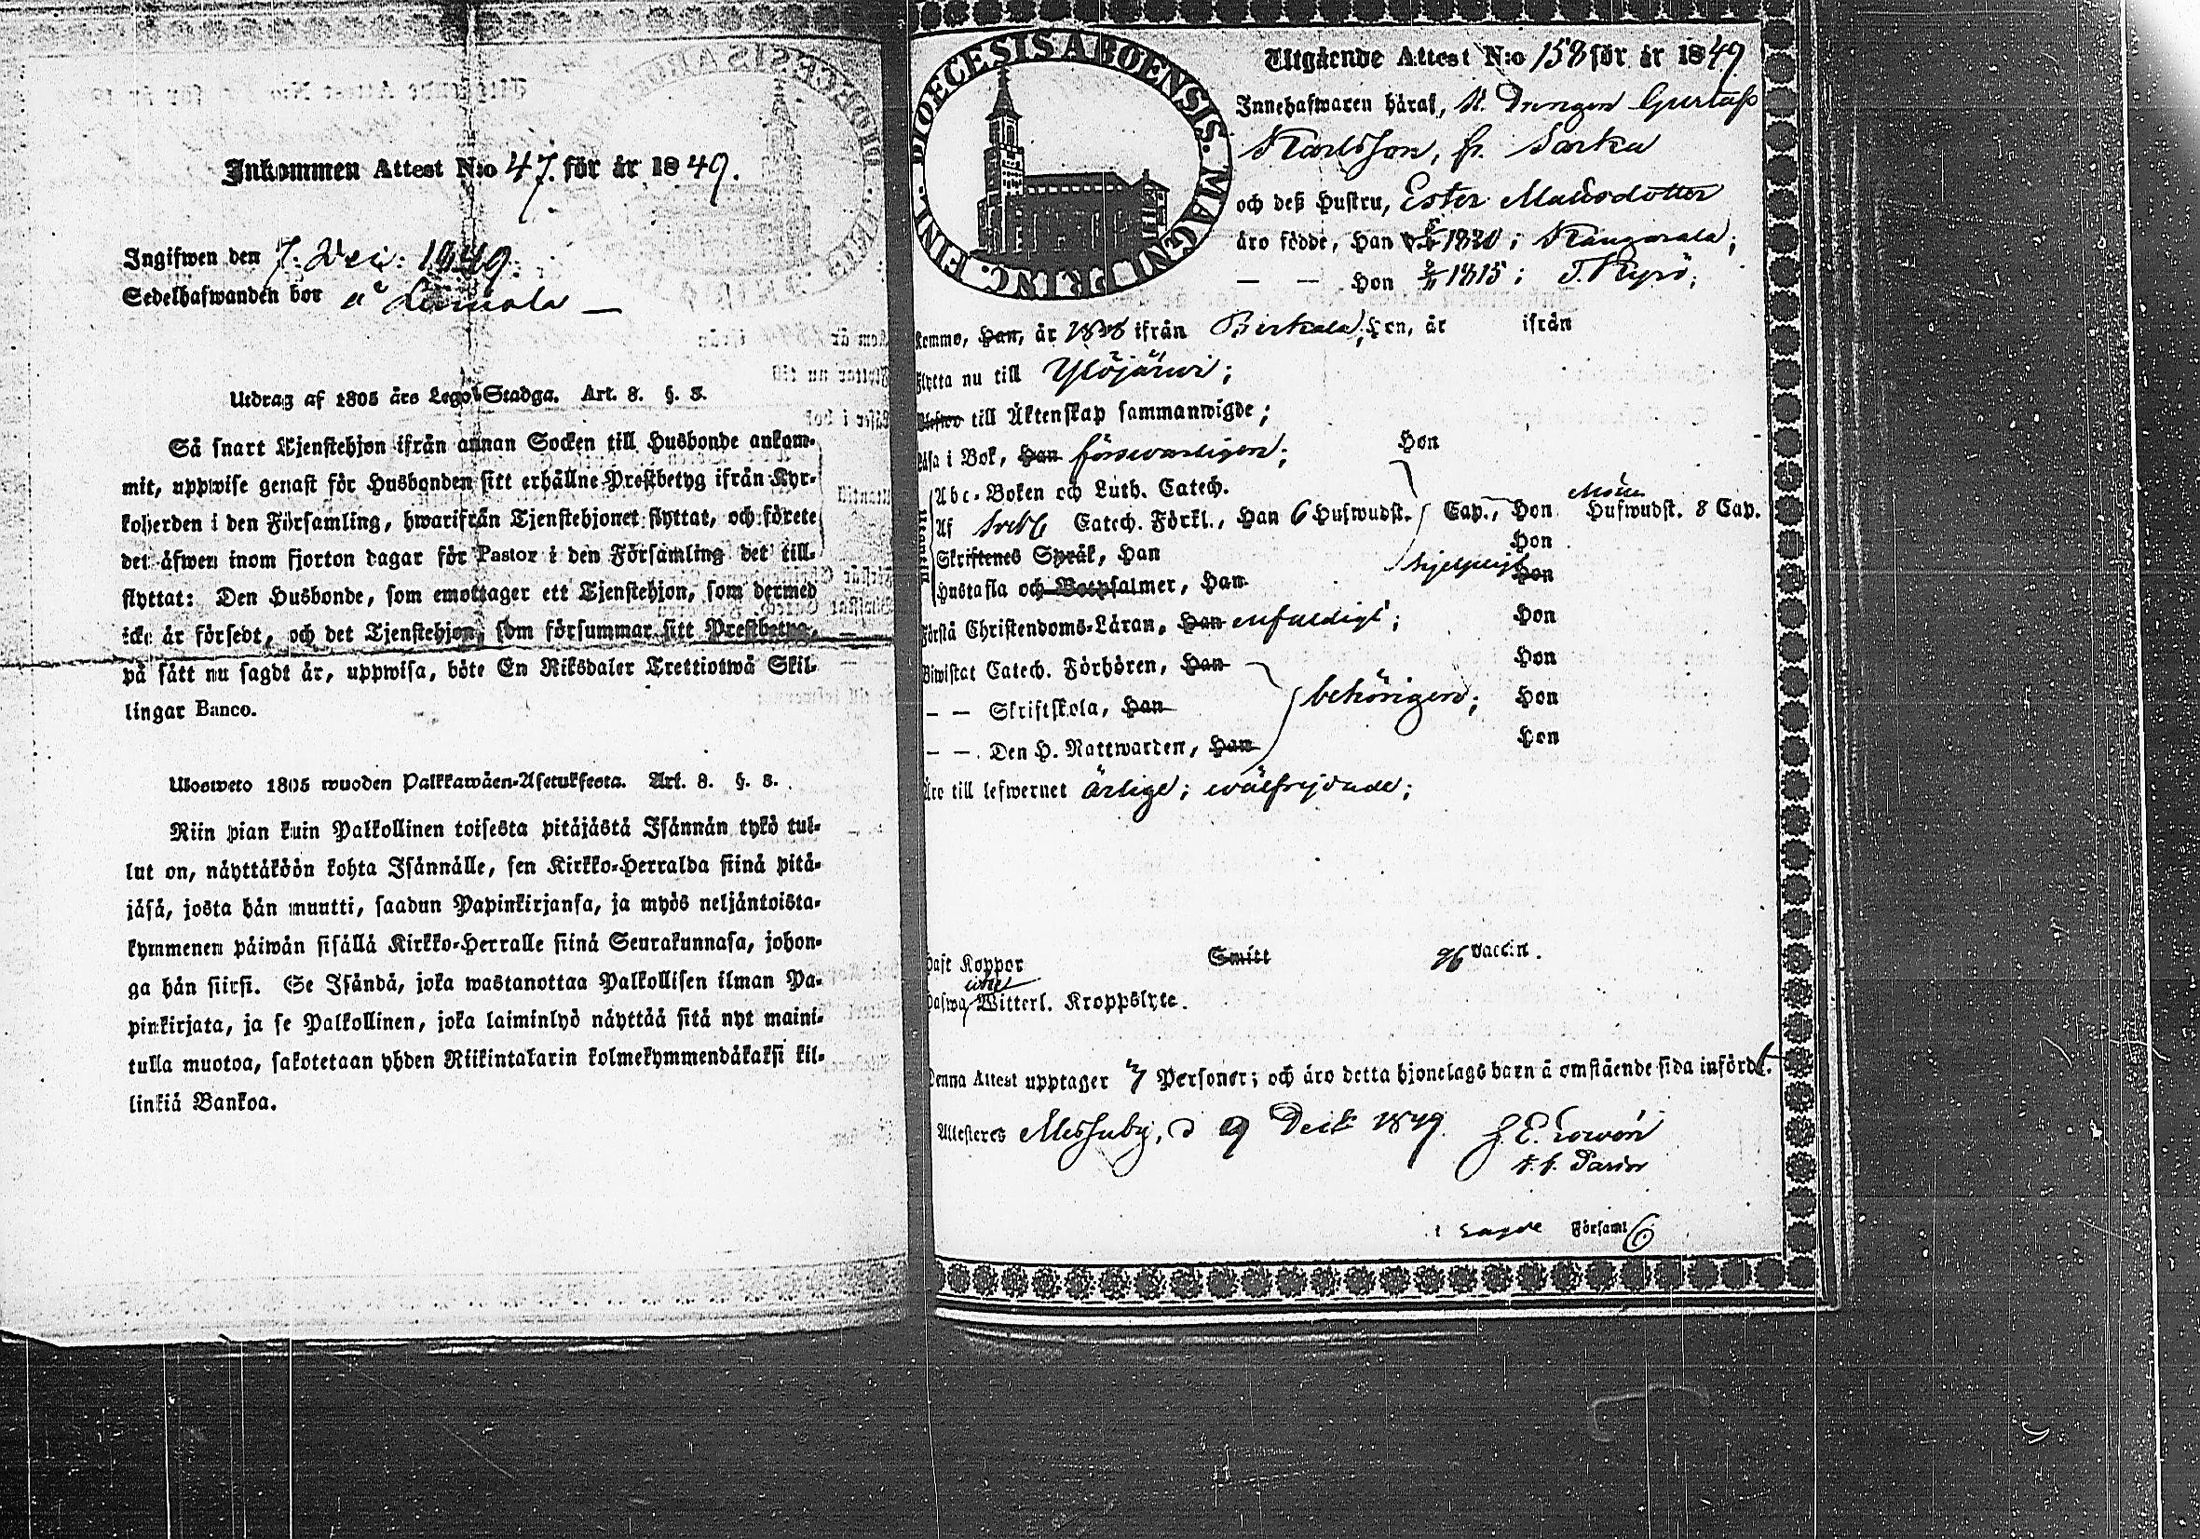 Inkommen Attest N:o 47. för år 1849.
Ingifwen den 7. Dec: 1849.
Sedelhafwanden bor å
Utdrag af 1805 års Lego-Stadga. Art. 8. §. 8.
Så snart Tjenstehjon ifrån annan Socken till Husbonde ankom-
mit, uppwise genast för Husbonden sitt erhållne Prestbetyg ifrån Kyr-
koherden i den Församling, hwarifrån Tjenstehjonet flyttat, och förete
det äfwen inom fjorton dagar för Pastor i den Församling det till-
flyttat: Den Husbonde, som emottager ett Tjenstehjon, som dermed
icke är försedt, och det Tjenstehjon, som försummar sitt Prestbetyg,
på sätt nu sagdt är, uppwisa, böte En Riksdaler Trettiotwå Skil-
lingar Banco.
Ulosweto 1805 wuoden Palkkawäen-Asetuksesta. Art. 8. §. 8.
Niin pian kuin Palkollinen toisesta pitäjästä Isännän tykö tul-
lut on, näyttäköön kohta Isännälle, sen Kirkko-Herralda siinä pitä-
jäsä, josta hän muutti, saadun Papinkirjansa, ja myös neljäntoista-
kymmenen päiwän sisällä Kirkko-Herralle siinä Seurakunnasa, johon-
ga hän siirsi. Se Isändä, joka wastanottaa Palkollisen ilman Pa-
pinkirjata, ja se Palkollinen, joka laiminlyö näyttää sitä nyt maini-
tulla muotoa, sakotetaan yhden Riikintalarin kolmekymmendäkaksi kil-
linkiä Bankoa.
DIOECESIS ABOENSIS. MAGNI PRINC. FINL.
Utgående Attest N:o 158 för år 1849
Innehafwaren häraf, Drengen Gustaf
Karlsson, fr. Sarka
och deß Hustru, Ester Matsdotter
äro födde, Han 1820; Kangasala;
— — Hon 1815; T. Kyrö;
komme, Han, år ifrån Birkala; Hon, år ifrån
flytta nu till Ylöjärwi;
till Äktenskap sammanwigde;
Läsa i Bok, Han försvarligen; Hon
Utantill
Abc-Boken och Luth. Catech.
Af Catech. Förkl., Han 6 Hufwudst. Cap., Hon Hufwudst. 8 Cap.
Skriftenes Språk, Han Hon
Hustafla och Botpsalmer, Han hjelpligt Hon
Förstå Christendoms-Läran, Han enfaldigt; Hon
Biwistat Catech. Förhören, Han Hon
— — Skriftskola, Han behörigen; Hon
— — Den H. Nattwarden, Han Hon
Äro till lefwernet ärlige; wälfrejdade;
Haft Koppor Smitt Vaccin.
Hafwa icke Witterl. Kroppslyte.
Denna Attest upptager 7 Personer; och äro detta hjonelags barn å omstående sida införde.
Attesteres Messuby, d 9 Dec 1849.
Församl
6